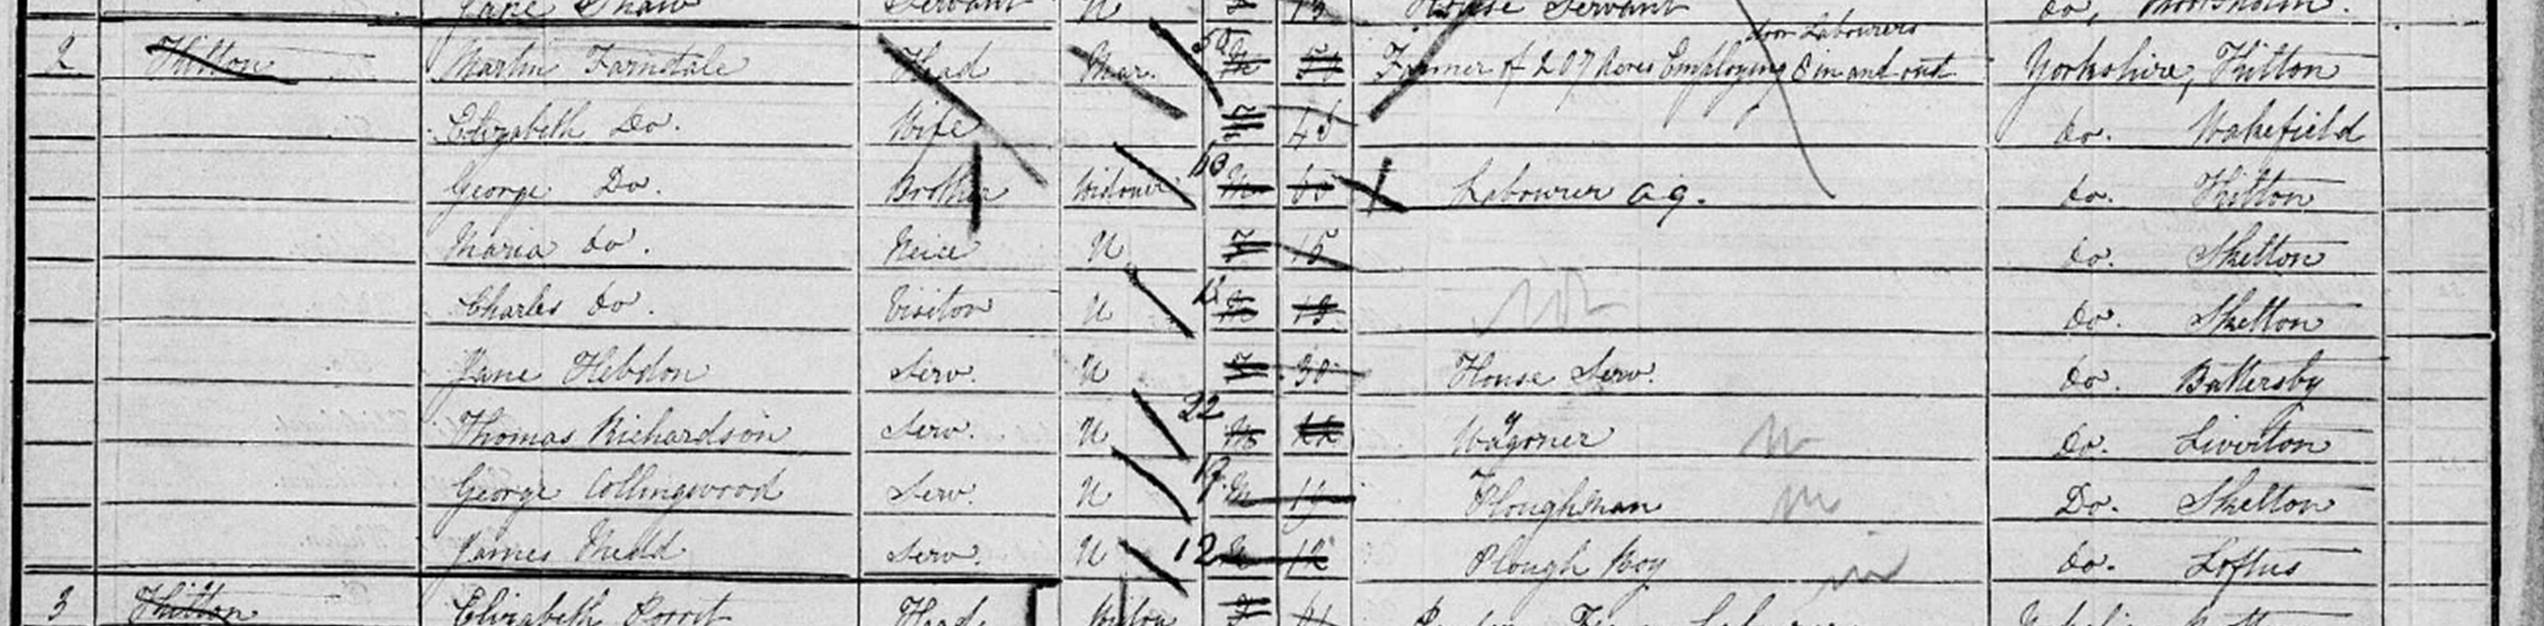 Jane Shaw Servant U F 13 House Servant do, Moorsholm.
door Labourers
2 Kilton Martin Farndale Head Mar. 50 M 50 Farmer of 207 Acres Employing 8 in and out Yorkshire, Kilton
Elizabeth Do. Wife F 45 do. Wakefield
George Do. Brother Widower 60 M 60 Labourer ag. do. Kilton
Maria do. Neice U F 15 do. Skelton
Charles do. Visitor U M do. Skelton
Jane Hebdon Serv. U F 30 House Serv. do. Battersby
Thomas Richardson Serv. U 22 M 22 Wagoner Do. Liverton
George Collingwood Serv. U M Ploughman Do. Skelton
James Serv. U 12 M 12 Plough Boy do. Loftus
3 Kilton Elizabeth Porrit Head F